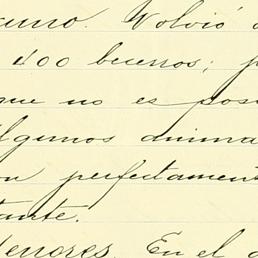 Volvió
400 becerros;
que no es pos
Algunos anima
perfectament
tante.
Menores. En el